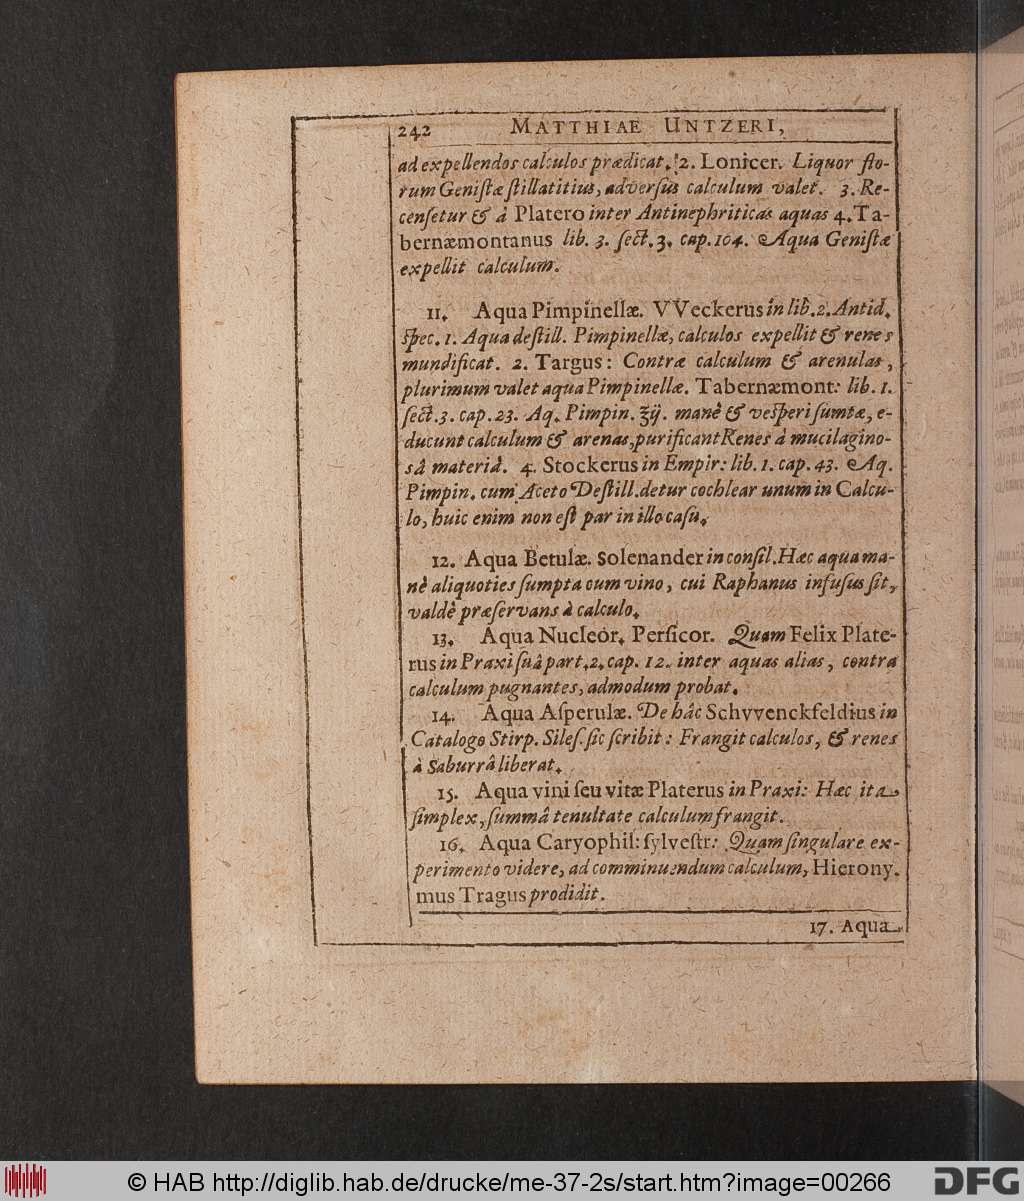 242 MATTHIAE UNTZERI,
ad expellendos calculos prædicat. 2. Lonicer. Liquor flo-
rum Genistæ stillatitius, adversùs calculum valet. 3. Re-
censetur & à Platero inter Antinephriticas aquas 4. Ta-
bernæmontanus lib. 3. sect. 3. cap. 104. Aqua Genistæ
expellit calculum.
11. Aqua Pimpinellæ. VVeckerus in lib. 2. Antid.
spec. 1. Aqua destill. Pimpinellæ, calculos expellit & renes
mundificat. 2. Targus: Contra calculum & arenulas,
plurimum valet aqua Pimpinellæ. Tabernæmont: lib. 1.
sect. 3. cap. 23. Aq. Pimpin. ℥ij. manè & vesperi sumtæ, e-
ducunt calculum & arenas, purificant Renes à mucilagino-
sâ materiâ. 4. Stockerus in Empir: lib. 1. cap. 43. Aq.
Pimpin. cum Aceto Destill. detur cochlear unum in Calcu-
lo, huic enim non est par in illo casu.
12. Aqua Betulæ. Solenander in consil. Hæc aqua ma-
nè aliquoties sumpta cum vino, cui Raphanus infusus sit,
valdè præservans à calculo.
13. Aqua Nucleor. Persicor. Quam Felix Plate-
rus in Praxi suâ part. 2. cap. 12. inter aquas alias, contra
calculum pugnantes, admodum probat.
14. Aqua Asperulæ. De hâc Schvvenckfeldius in
Catalogo Stirp. Siles. sic scribit: Frangit calculos, & renes
à Saburrâ liberat.
15. Aqua vini seu vitæ Platerus in Praxi: Hæc ita
simplex, summâ tenultate calculum frangit.
16. Aqua Caryophil: sylvestr: Quam singulare ex-
perimento videre, ad comminuendum calculum, Hierony.
mus Tragus prodidit.
17. Aqua
© HAB http://diglib.hab.de/drucke/me-37-2s/start.htm?image=00266
DFG